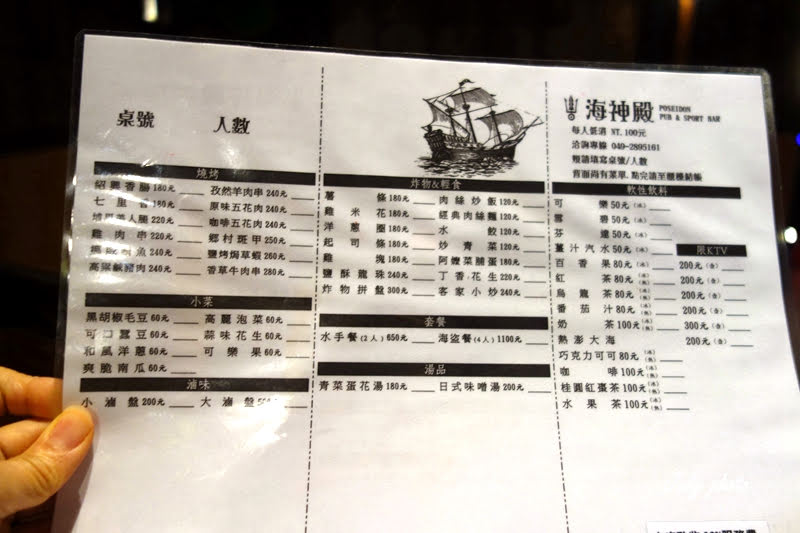 桌號 人數
燒烤
紹興香腸180元 孜然羊肉串240元
七里香180元 原味五花肉240元
埔里美人腿220元 咖啡五花肉240元
雞肉串220元 鄉村斑甲250元
鹽烤焗草蝦260元
鹹豬肉240元 香草牛肉串280元
小菜
黑胡椒毛豆60元 高麗泡菜60元
可口蠶豆60元 蒜味花生60元
和風洋蔥60元 可樂果60元
爽脆南瓜60元
滷味
小滷盤200元 大滷盤
炸物&輕食
薯條180元 肉絲炒飯120元
雞米花180元 經典肉絲麵120元
洋蔥圈180元 水餃120元
起司條180元 炒青菜120元
雞塊180元 阿嬤菜脯蛋180元
鹽酥龍珠240元 丁香花生220元
炸物拼盤300元 客家小炒240元
套餐
水手餐(2人)650元 海盜餐(4人)1100元
湯品
青菜蛋花湯180元 日式味噌湯200元
海神殿 POSEIDON PUB & SPORT BAR
每人低消 NT.100元
洽詢專線 049-2895161
煩請填寫桌號/人數
舊面尚有菜單.點完請至櫃檯結帳
軟性飲料
可樂50元(冰)
雪碧50元(冰)
芬達50元(冰)
薑汁汽水50元(冰) 限KTV
百香果80元(冰)(熱) 200元(壺)
紅茶80元(冰)(熱) 200元(壺)
烏龍茶80元(冰)(熱) 200元(壺)
番茄汁80元(冰) 200元(壺)
奶茶100元(冰)(熱) 300元(壺)
熱澎大海 200元(壺)
巧克力可可80元(冰)(熱)
咖啡100元(冰)(熱)
桂圓紅棗茶100元(冰)(熱)
水果茶100元(冰)(熱)